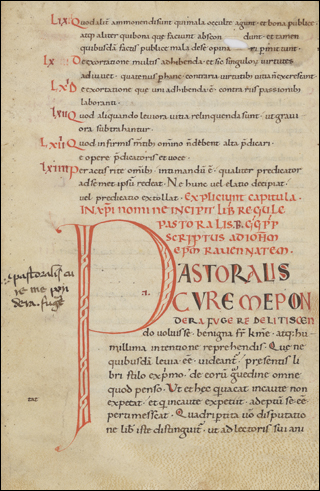 LIX Quod aliter ammonendi sunt qui mala occulte agunt · et bona publice
atq; aliter qui bona quę faciunt abscon dunt · et tamen
quibusdā factis publicę mala de se opina ri pmittunt ·
LX De exortatione multis adhibenda · et sic singulorū virtutes
adiuvet · quatenus phanc contraria virtutib; vitia ñ excrescant ·
LXI De exortatione que uni adhibenda ē · contrariis passionib;
laboranti ·
LXII Quod aliquando leviora vitia relinquenda sunt · ut gravi
ora subtrahantur ·
LXIII Quod infirmis mtib; omīno ñ debent alta pdicari ·
e opere pdicatoris et voce ·
LXIIII Peractis rite omīb; · intimandū ē · qualiter predicator
ad semet ipsū redeat · Ne hunc vel elatio decipiat ·
vel predicatio extollat · EXPLICIUNT CAPITULA ·
IN XPI NOMINE INCIPIT LIB REGULE
PASTORALIS · B · G · PP
SCRIPTUS AD IOHEM
EPM RAVENNATEM ·
PASTORALIS
CURE ME PON
DERA FUGERE DELITISCEN
do voluisse · benigna fr kme · atq; hu
millima intentione reprehendis · Que ne
quibusdā levia eē videant · presentis li
bri stilo expmo · de eorū gvedine omne
quod penso · Ut et hęc qui vacat incaute non
expetat · et qui incaute expetiit · adeptū se eē
pertimescat · Quadripertita vō disputatio
ne lib iste distinguit · ut ad lectoris sui ani
pastoralis cu
re me pon
dera fuge